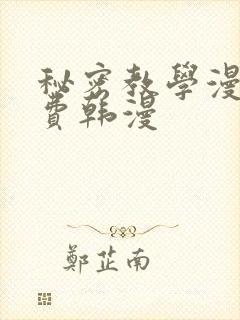 秘密教學漫
費韩漫
鄭芷南